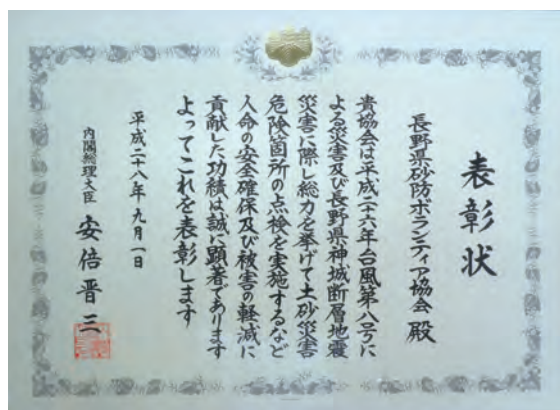 表彰状
長野県砂防ボランティア協会 殿
貴協会は平成二六年台風第八号に
よる災害及び長野県神城断層地震
災害に際し総力を挙げて土砂災害
危険箇所の点検を実施するなど
人命の安全確保及び被害の軽減に
貢献した功績は誠に顕著であります
よってこれを表彰します
平成二八年九月一日
内閣総理大臣 安倍晋三